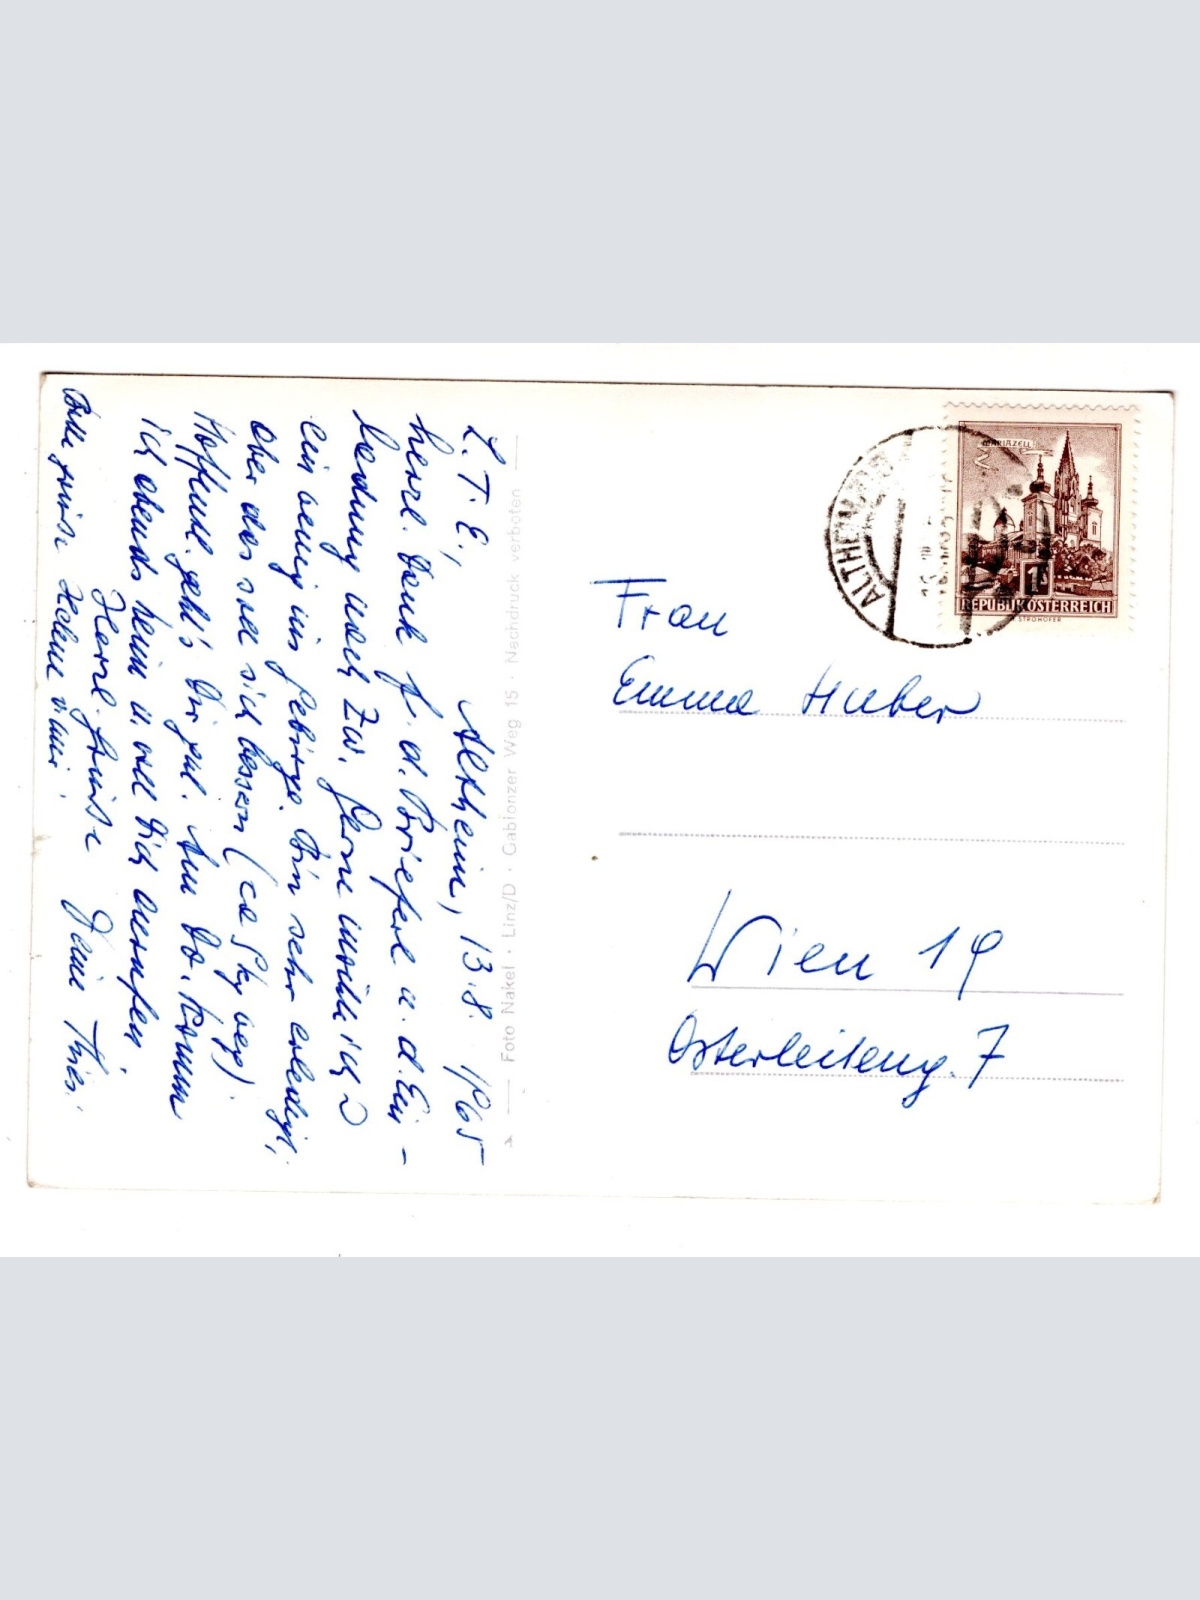 L. T. E., Altheim, 13.8. 1965
herzl. Dank f. d. Brieferl u. d. Ein-
ladung nach Zw. Gerne möchte ich
ein wenig ins Gebirge. Bin sehr erledigt,
aber das soll sich bessern (ca 5 kg weg).
Hoffentl. geht's Dir gut. Am Do. komm
ich abends heim u. will Dich anrufen
Herzl. Grüße Deine
Bitte grüße Helene v. mir.
Foto Nakel · Linz/D · Gablonzer Weg 15 · Nachdruck verboten
ALTHEIM
MARIAZELL
1S
REPUBLIK ÖSTERREICH
STROHOFER
Frau
Emma Huber
Wien 19
Osterleiteng. 7